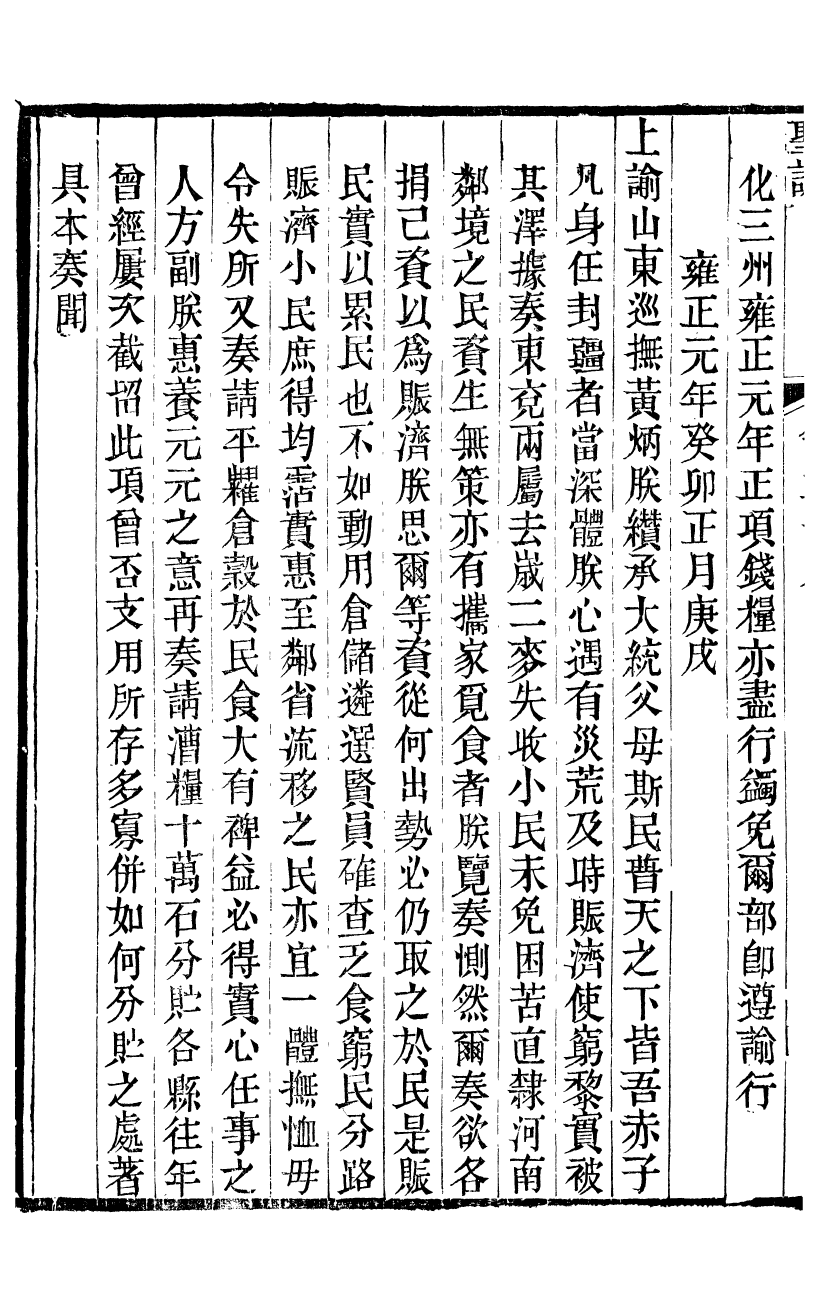 化三州雍正元年正項錢糧亦盡行蠲免爾部卽遵諭行
雍正元年癸卯正月庚戌
上諭山東巡撫黃炳朕纘承大統父母斯民普天之下皆吾赤子
凡身任封疆者當深體朕心遇有災荒及時賑濟使窮黎實被
其澤據奏東兗兩屬去歲二麥失收小民未免困苦直隸河南
鄰境之民資生無策亦有攜家覓食者朕覽奏惻然爾奏欲各
捐己資以爲賑濟朕思爾等資從何出勢必仍取之於民是賑
民實以累民也不如動用倉儲遴選賢員確查乏食窮民分路
賑濟小民庶得均霑實惠至鄰省流移之民亦宜一體撫恤毋
令失所又奏請平糶倉穀於民食大有裨益必得實心任事之
人方副朕惠養元元之意再奏請漕糧十萬石分貯各縣往年
曾經屢次截留此項曾否支用所存多寡併如何分貯之處著
具本奏聞